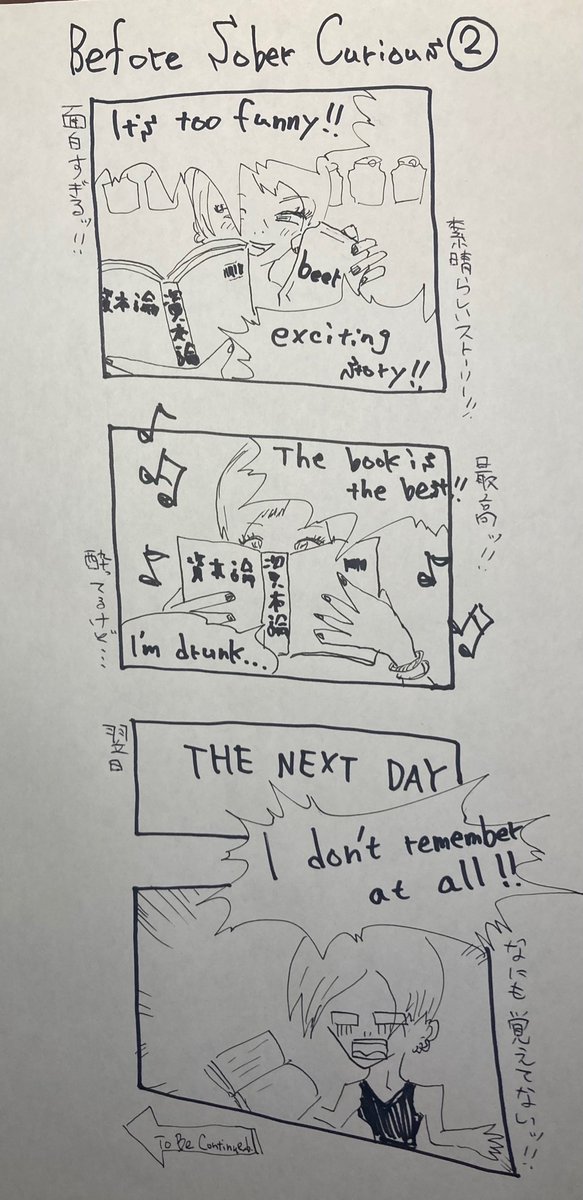 Before Sober Curious②
It's too funny!!
面白すぎるッ!!
beer
資本論
資本論
exciting
story!!
素晴らしいストーリー!!
The book is
the best!!
最高ッ!!
資本論
資本論
I'm drunk...
酔ってるけど…
翌日
THE NEXT DAY
I don't remember
at all!!
なにも覚えてないッ!!
To Be Continued